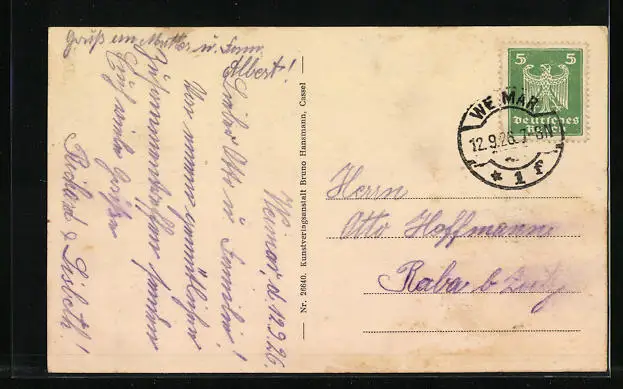 Gruß an Mutter u. Fam.
Albert!
Weimar, d. 12.9.26.
Lieber Otto u. Familie!
Von unserem gemütlichen
Zusammentreffen senden
Euch viele Grüße
Richard & Lisbeth!
Nr. 26640. Kunstverlagsanstalt Bruno Hansmann, Cassel
5 5
Deutsches
Reich
WEIMAR
12.9.26.7-8N
* 1 f
Herrn
Otto Hoffmann
Raba b.